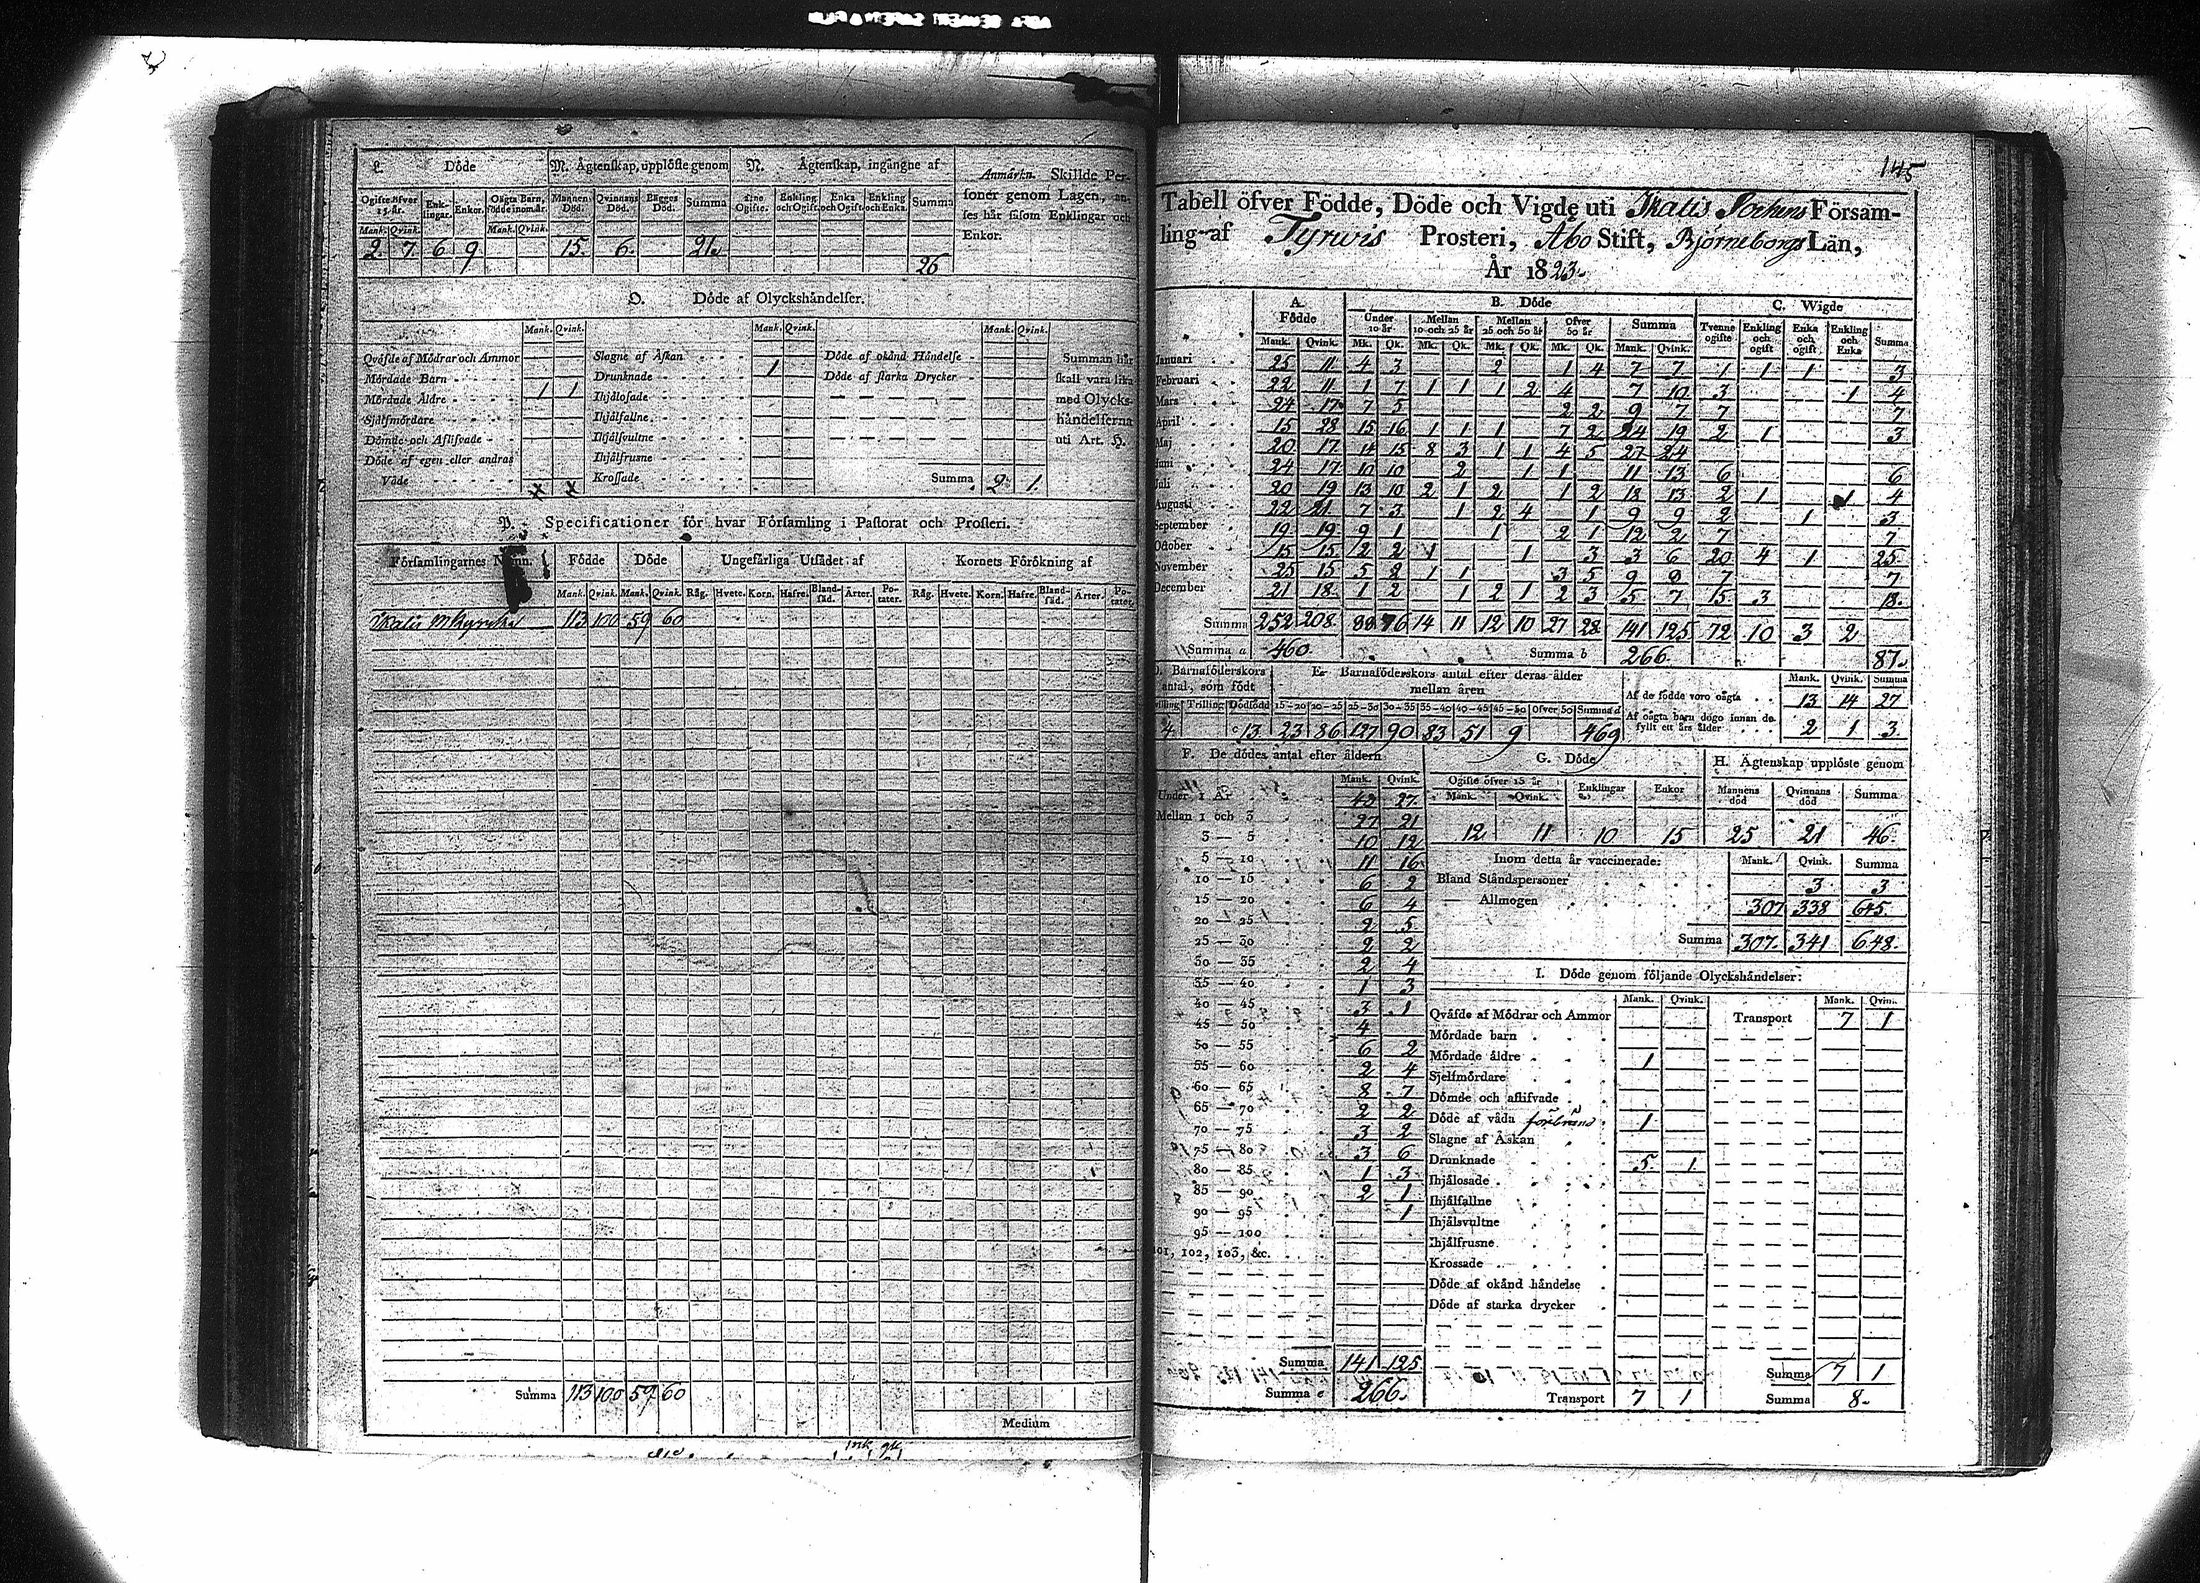 L. Döde M. Ägtenskap, upplöste genom N. Ägtenskap, ingångne af Anmärkn. Skillde Per-
soner genom Lagen, an-
ses här såsom Enklingar och
Enkor.
Ogifte öfver 15 år. Enk-lingar. Enkor. Oägta Barn, födde inom år. Mannens Död. Qvinnans Död. Bägges Död. Summa Ogifte. Enkling och Ogift. Enka och Ogift. Enkling och Enka. Summa
Mank. Qvink. Mank. Qvink.
2. 7. 6 9 15. 6. 21. 26
O. Döde af Olyckshändelser.
Mank. Qvink. Mank. Qvink. Mank. Qvink.
Qväfde af Mödrar och Ammor Slagne af Åskan Döde af okänd Händelse Summan här
Mördade Barn Drunknade 1 Döde af starka Drycker skall vara lika
Mördade Äldre 1 1 Ihjälosade med Olycks-
Sjelfmördare Ihjälfallne händelserna
Dömde och Aflifvade Ihjälsvultne uti Art. H.
Döde af egen eller andras Ihjälfrusne
Våde Krossade Summa 2. 1.
P. Specificationer för hvar Församling i Pastorat och Prosteri.
Församlingarnes Namn. Födde Döde Ungefärliga Utsädet af Kornets Förökning af
Mank. Qvink. Mank. Qvink. Råg. Hvete. Korn. Hafre. Bland-säd. Ärter. Po-tater. Råg. Hvete. Korn. Hafre. Bland-säd. Ärter. Po-tater.
113 100 59 60
Summa 113 100 59 60
Medium
mk qk
145
Tabell öfver Födde, Döde och Vigde uti Ikalis Sockens Försam-
ling af Tyrwis Prosteri, Åbo Stift, Björneborgs Län,
År 1823.
A. Födde B. Döde C. Wigde
Under 10 år Mellan 10 och 25 år Mellan 25 och 50 år Öfver 50 år Summa Tvenne ogifte Enkling och ogift Enka och ogift Enkling och Enka Summa
Mank. Qvink. Mk. Qk. Mk. Qk. Mk. Qk. Mk. Qk. Mank. Qvink.
Januari 25 11 4 3 2 1 4 7 7 1 1 1 3
Februari 22 11 1 7 1 1 1 2 4 7 10 3 1 4
Mars 24 17 7 5 2 2 9 7 7 7
April 15 28 15 16 1 1 1 7 2 24 19 2 1 3
Maj 20 17 14 15 8 3 1 1 4 5 27 24
Juni 24 17 10 10 2 1 1 11 13 6 6
Juli 20 19 13 10 2 1 2 1 2 18 13 2 1 1 4
Augusti 22 21 7 3 1 2 4 1 9 9 2 1 3
September 19 19 9 1 1 2 1 12 2 7 7
October 15 15 2 2 1 1 3 3 6 20 4 1 25
November 25 15 5 2 1 1 3 5 9 8 7 7
December 21 18 1 2 1 2 1 2 3 5 7 15 3 18.
Summa 252 208 88 76 14 11 12 10 27 28 141 125 72 10 3 2
Summa a 460. Summa b 266. 87.
D. Barnaföderskors antal, som födt E. Barnaföderskors antal efter deras ålder mellan åren Mank. Qvink. Summa
Tvilling Trilling Dödfödd 15-20 20-25 25-30 30-35 35-40 40-45 45-50 Öfver 50 Summa d Af de födde voro oägta 13 14 27
4 13 23 86 127 90 83 51 9 469 Af oägta barn dögo innan de fyllt ett års ålder 2 1 3
F. De dödes antal efter åldern G. Döde H. Ägtenskap upplöste genom
Mank. Qvink. Ogifte öfver 15 år Enklingar Enkor Mannens död Qvinnans död Summa
Under 1 År 42 27 Mank. Qvink.
Mellan 1 och 3 27 21
3 — 5 10 12 12 11 10 15 25 21 46
5 — 10 11 16 Inom detta år vaccinerade: Mank. Qvink. Summa
10 — 15 6 2 Bland Ståndspersoner 3 3
15 — 20 6 4 — Allmogen 307 338 645
20 — 25 2 5
25 — 30 2 2 Summa 307. 341 648.
30 — 35 2 4
35 — 40 1 3 I. Döde genom följande Olyckshändelser:
40 — 45 3 1 Mank. Qvink. Mank. Qvin.
45 — 50 4 Qväfde af Mödrar och Ammor Transport 7 1
50 — 55 6 2 Mördade barn
55 — 60 2 4 Mördade äldre 1
60 — 65 8 7 Sjelfmördare
65 — 70 2 2 Dömde och aflifvade
70 — 75 3 2 Döde af våda förbränd 1
75 — 80 3 6 Slagne af Åskan
80 — 85 1 3 Drunknade 5 1
85 — 90 2 1 Ihjälosade
90 — 95 1 Ihjälfallne
95 — 100 Ihjälsvultne
101, 102, 103, &c. Ihjälfrusne
Krossade
Döde af okänd händelse
Döde af starka drycker
Summa 141 125 Summa 7 1
Summa e 266. Transport 7 1 Summa 8.